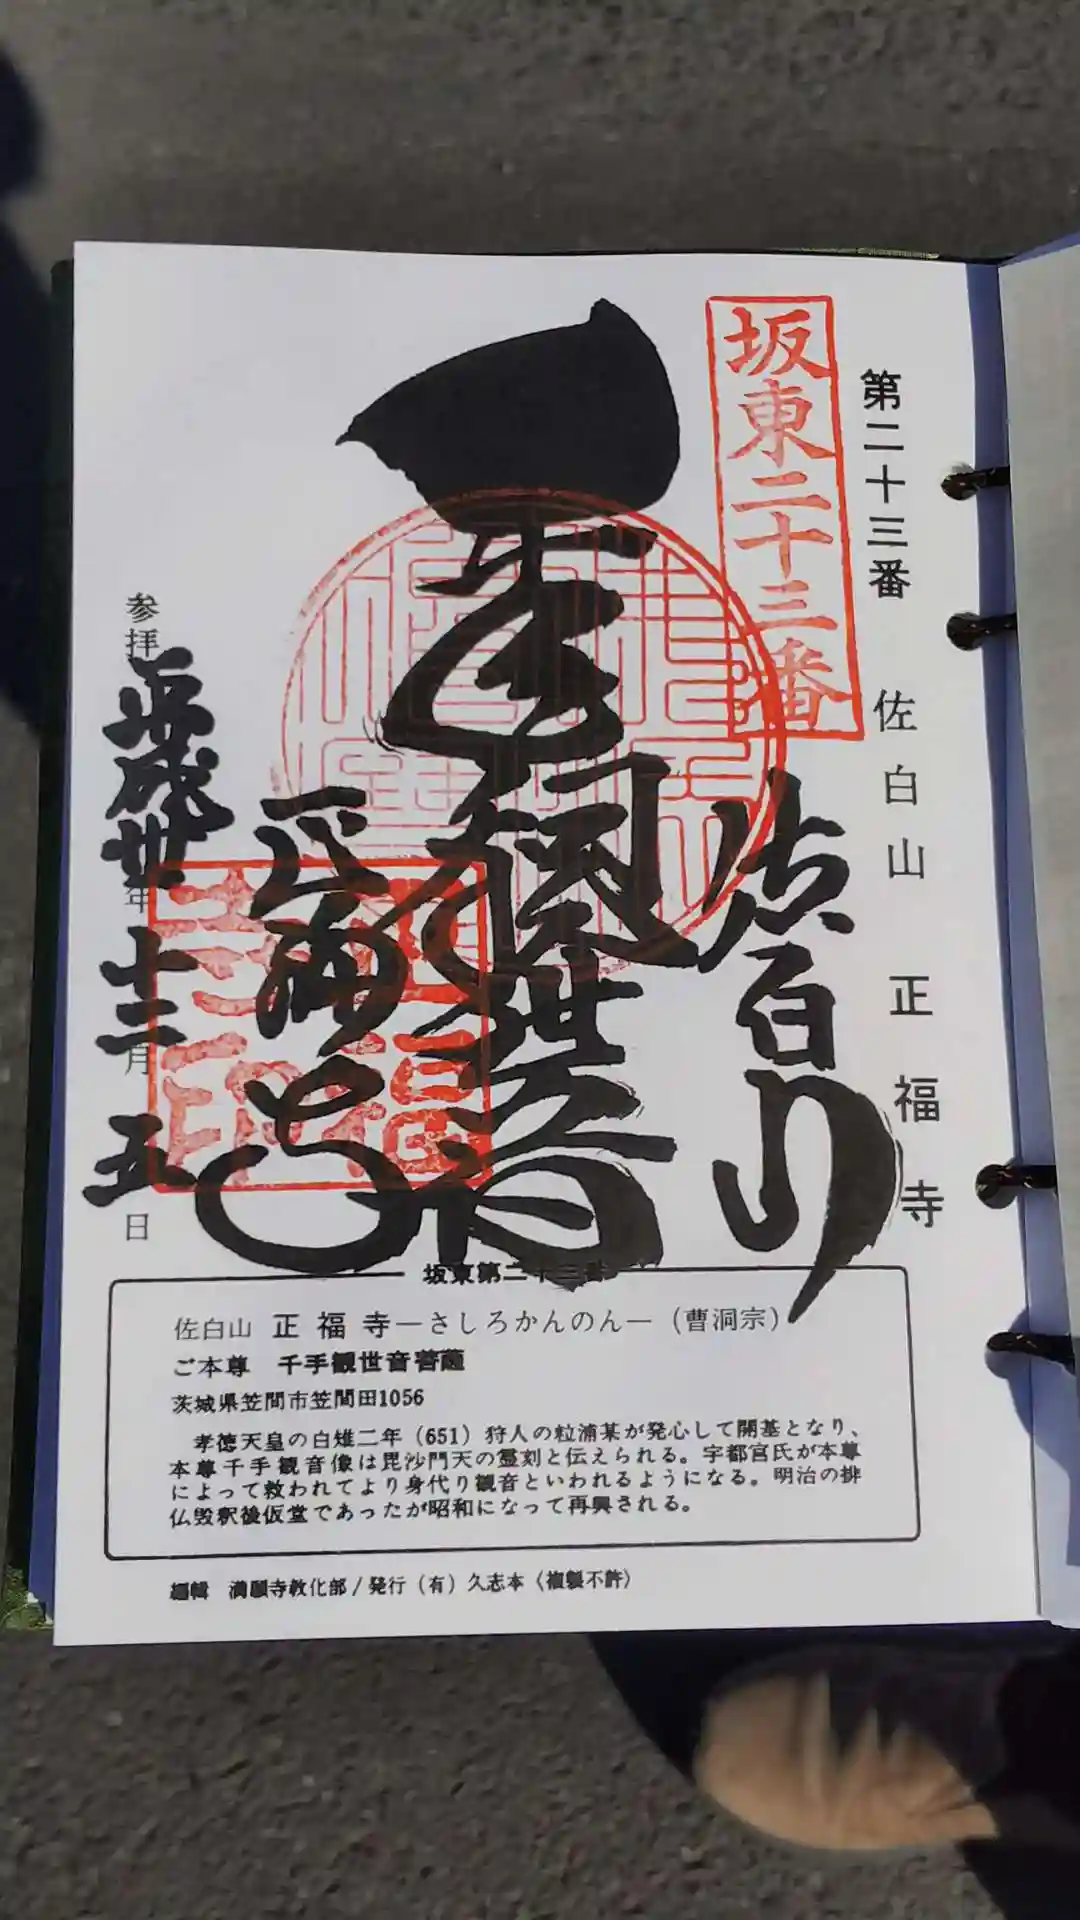 第二十三番　佐白山　正福寺
坂東二十三番
佐白山
千手観世音
正福寺
参拝 平成卅年十二月五日
坂東第二十三番
佐白山　正福寺—さしろかんのん—（曹洞宗）
ご本尊　千手観世音菩薩
茨城県笠間市笠間田1056
孝徳天皇の白雉二年（651）狩人の粒浦某が発心して開基となり、
本尊千手観音像は毘沙門天の霊刻と伝えられる。宇都宮氏が本尊
によって救われてより身代り観音といわれるようになる。明治の排
仏毀釈後仮堂であったが昭和になって再興される。
編輯　満願寺教化部/発行（有）久志本〈複製不許〉